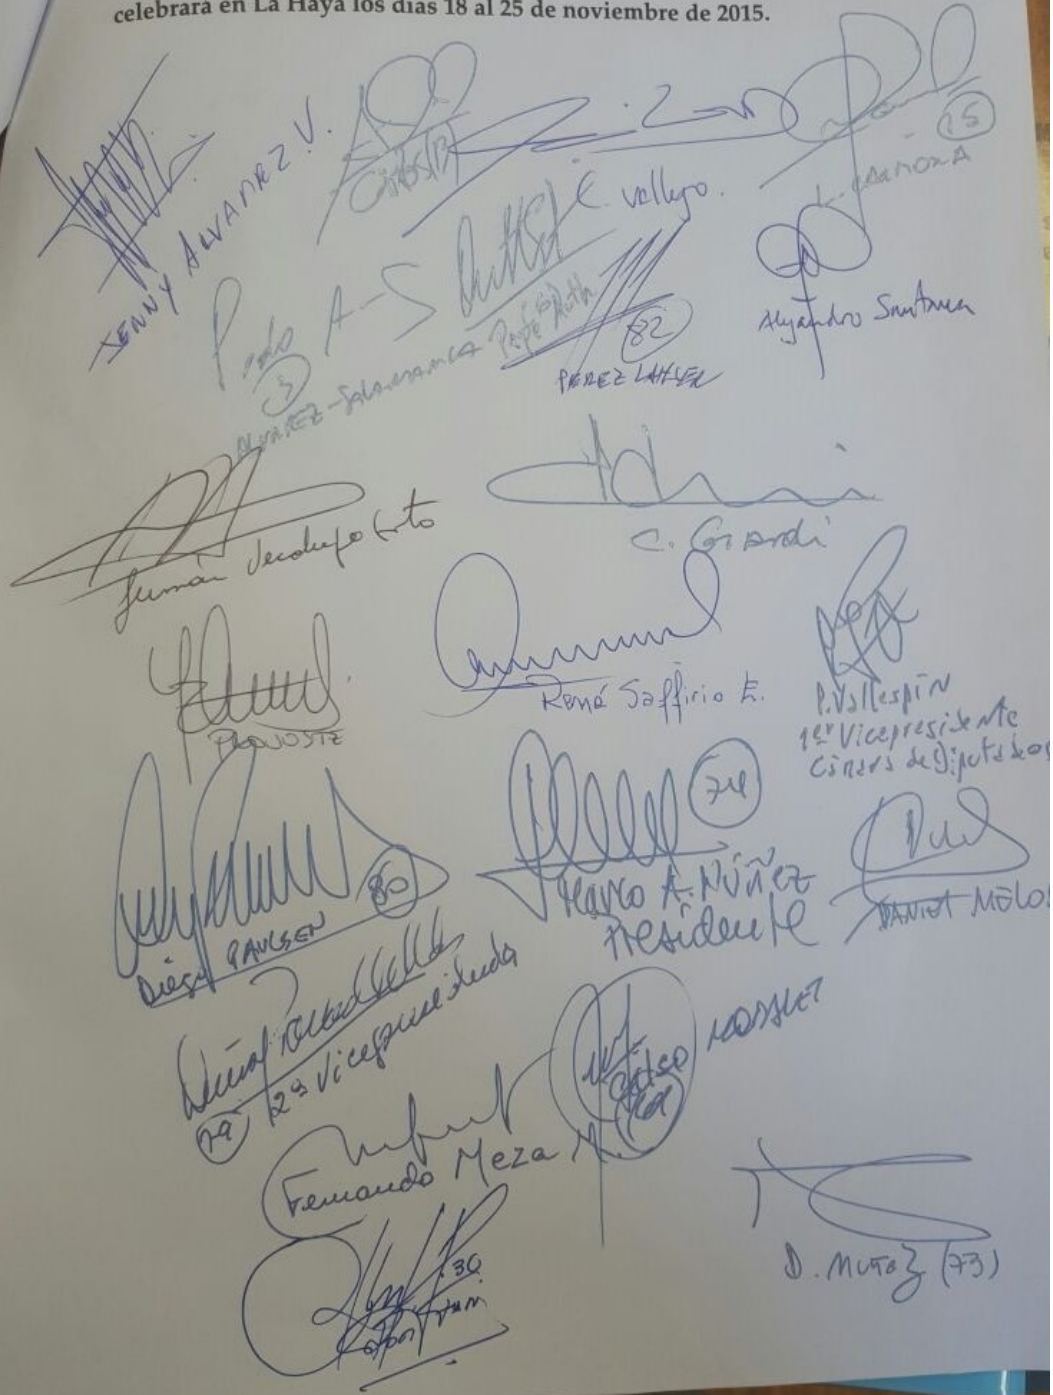 celebrará en La Haya los días 18 al 25 de noviembre de 2015.
JENNY ALVAREZ V.
C. Vallejo.
15
L. CARMONA
Pedro A-S
3
ALVAREZ-SALAMANCA
Pepe Auth
82
PEREZ LAHSEN
Alejandro Santana
Germán Verdugo Soto
C. Girardi
PROVOSTE
René Saffirio E.
P. Vallespín
1er Vicepresidente
Cámara de Diputados
74
Marco A. Núñez
Presidente
80
Diego PAULSEN
DANIEL MELO
2a Vicepresidenta
79
Fernando Meza M.
30
D. MUÑOZ (73)